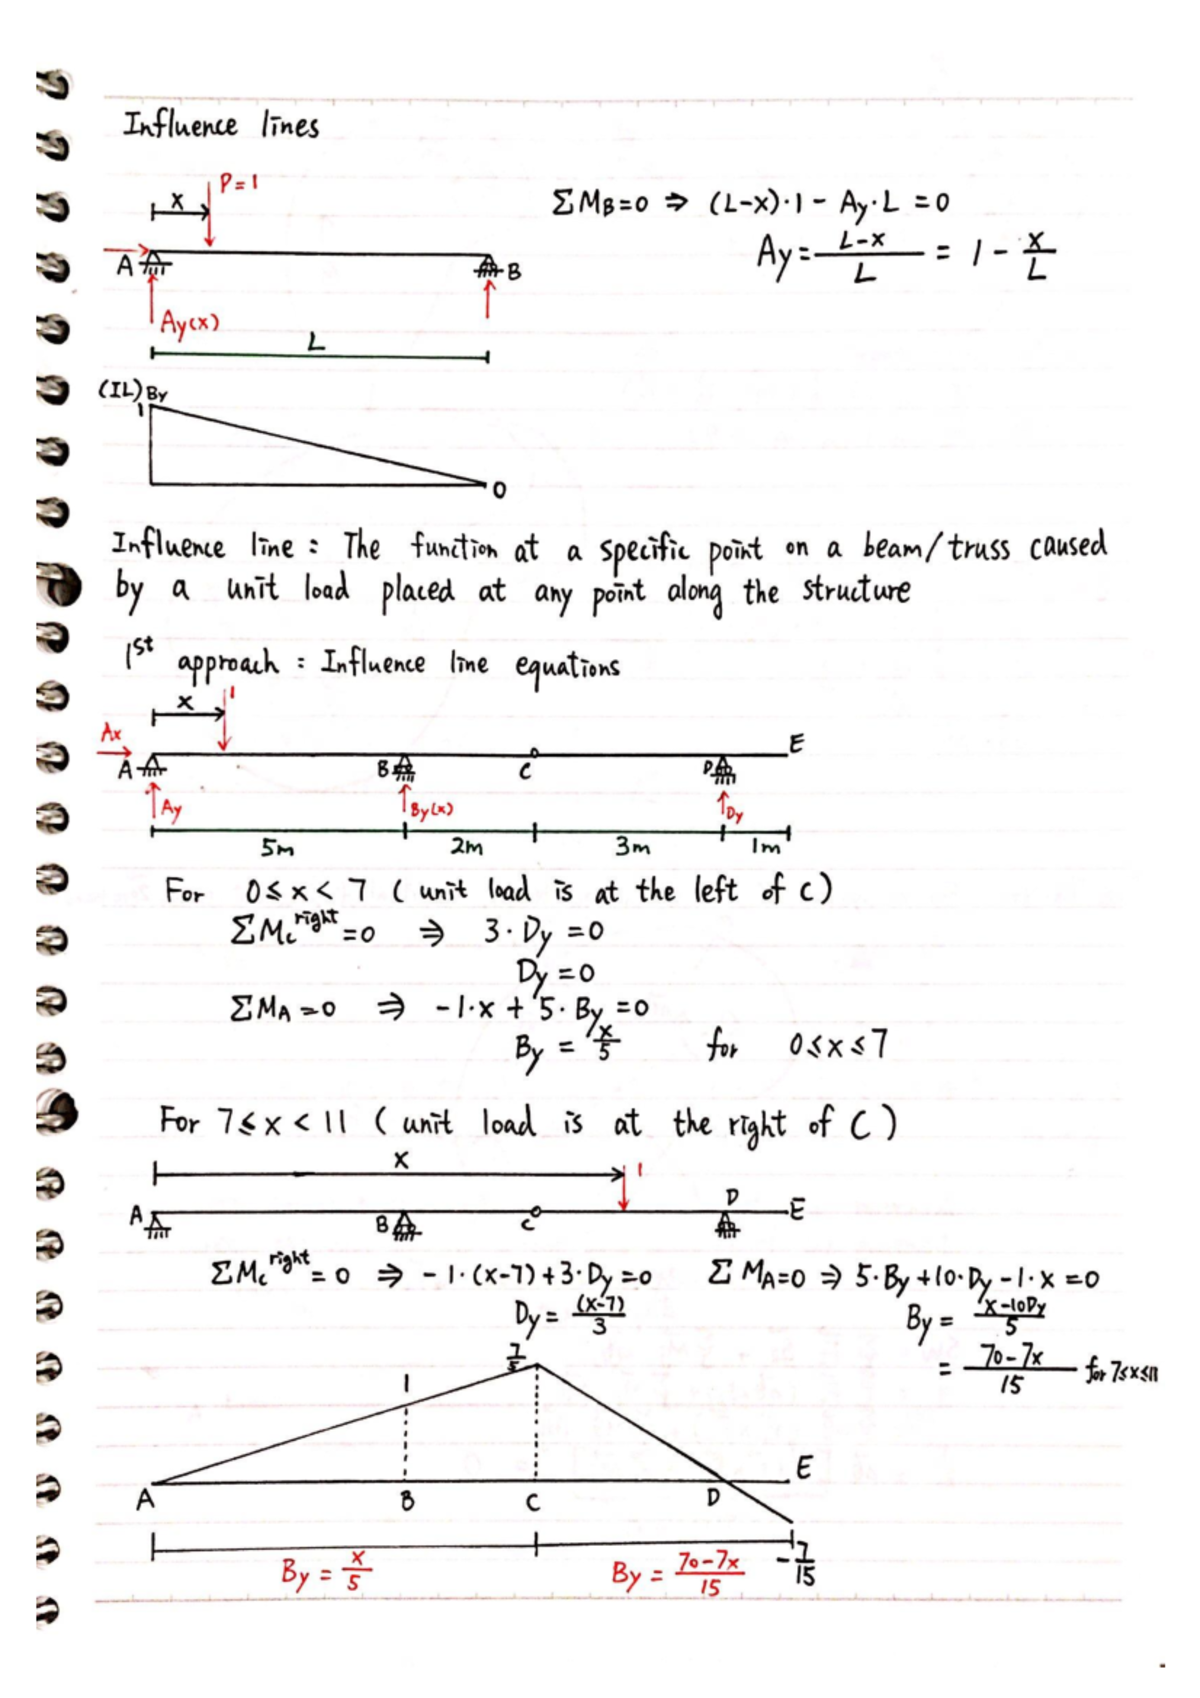 Influence lines
P=1
x
ΣMB=0 ⇒ (L-x)·1 - Ay·L = 0
A
B
Ay = (L-x)/L = 1 - x/L
Ay(x)
L
(IL) By
1
0
Influence line : The function at a specific point on a beam/truss caused
by a unit load placed at any point along the structure
1st approach : Influence line equations
x 1
Ax
E
A B C D
Ay By(x) Dy
5m 2m 3m 1m
For 0≤x<7 ( unit load is at the left of C)
ΣMc right =0 ⇒ 3·Dy =0
Dy =0
ΣMA=0 ⇒ -1·x + 5·By =0
By = x/5 for 0≤x≤7
For 7≤x<11 ( unit load is at the right of C )
x 1
A B C D E
ΣMc right = 0 ⇒ -1·(x-7)+3·Dy=0 ΣMA=0 ⇒ 5·By+10·Dy-1·x=0
Dy = (x-7)/3 By = (x-10Dy)/5
= (70-7x)/15 for 7≤x≤11
7/5
1
E
A B C D
-7/15
By = x/5 By = (70-7x)/15